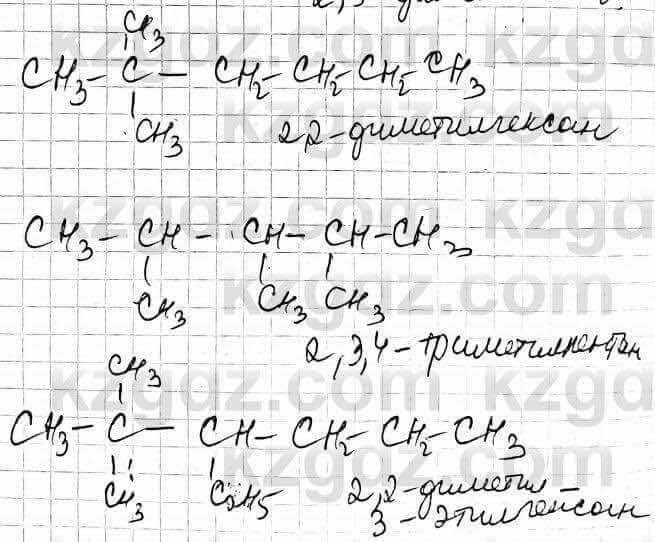 CH3
CH3 - C - CH2 - CH2 - CH2 - CH3
CH3
2,2-диметилгексан
CH3 - CH - CH - CH - CH3
CH3 CH3 CH3
2,3,4-триметилпентан
CH3
CH3 - C - CH - CH2 - CH2 - CH3
CH3 C2H5
2,2-диметил-
3-этилгексан
kzgdz.com